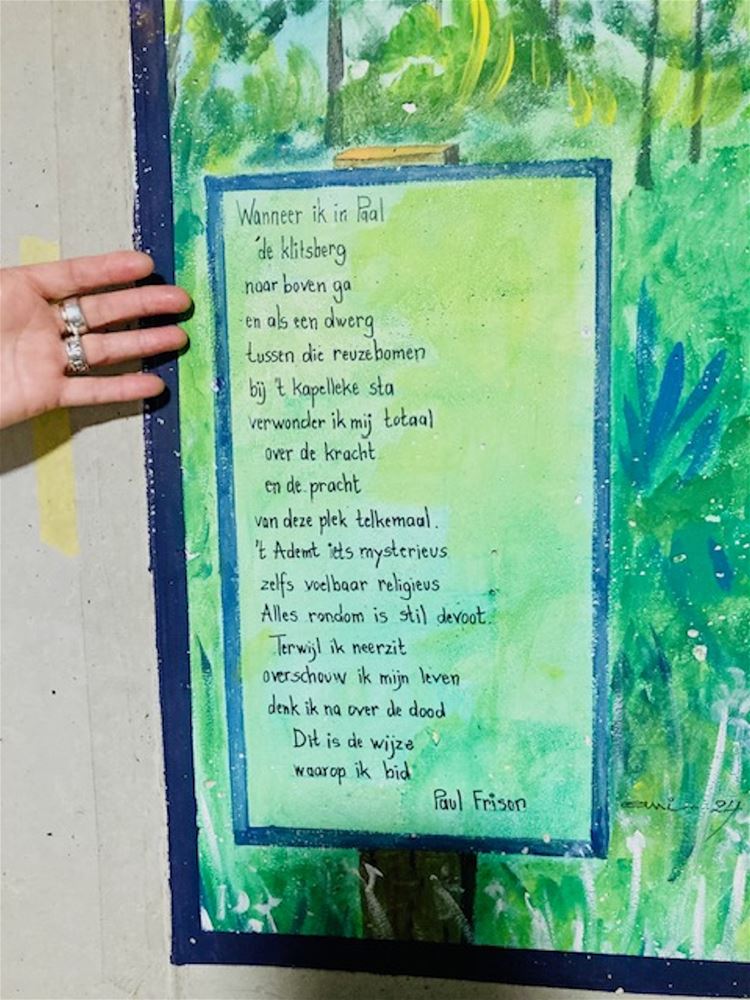 Wanneer ik in Paal
'de klitsberg
naar boven ga
en als een dwerg
tussen die reuzebomen
bij 't kapelleke sta
verwonder ik mij totaal
over de kracht
en de pracht
van deze plek telkemaal.
't Ademt iets mysterieus
zelfs voelbaar religieus
Alles rondom is stil devoot.
Terwijl ik neerzit
overschouw ik mijn leven
denk ik na over de dood
Dit is de wijze
waarop ik bid
Paul Frison
24